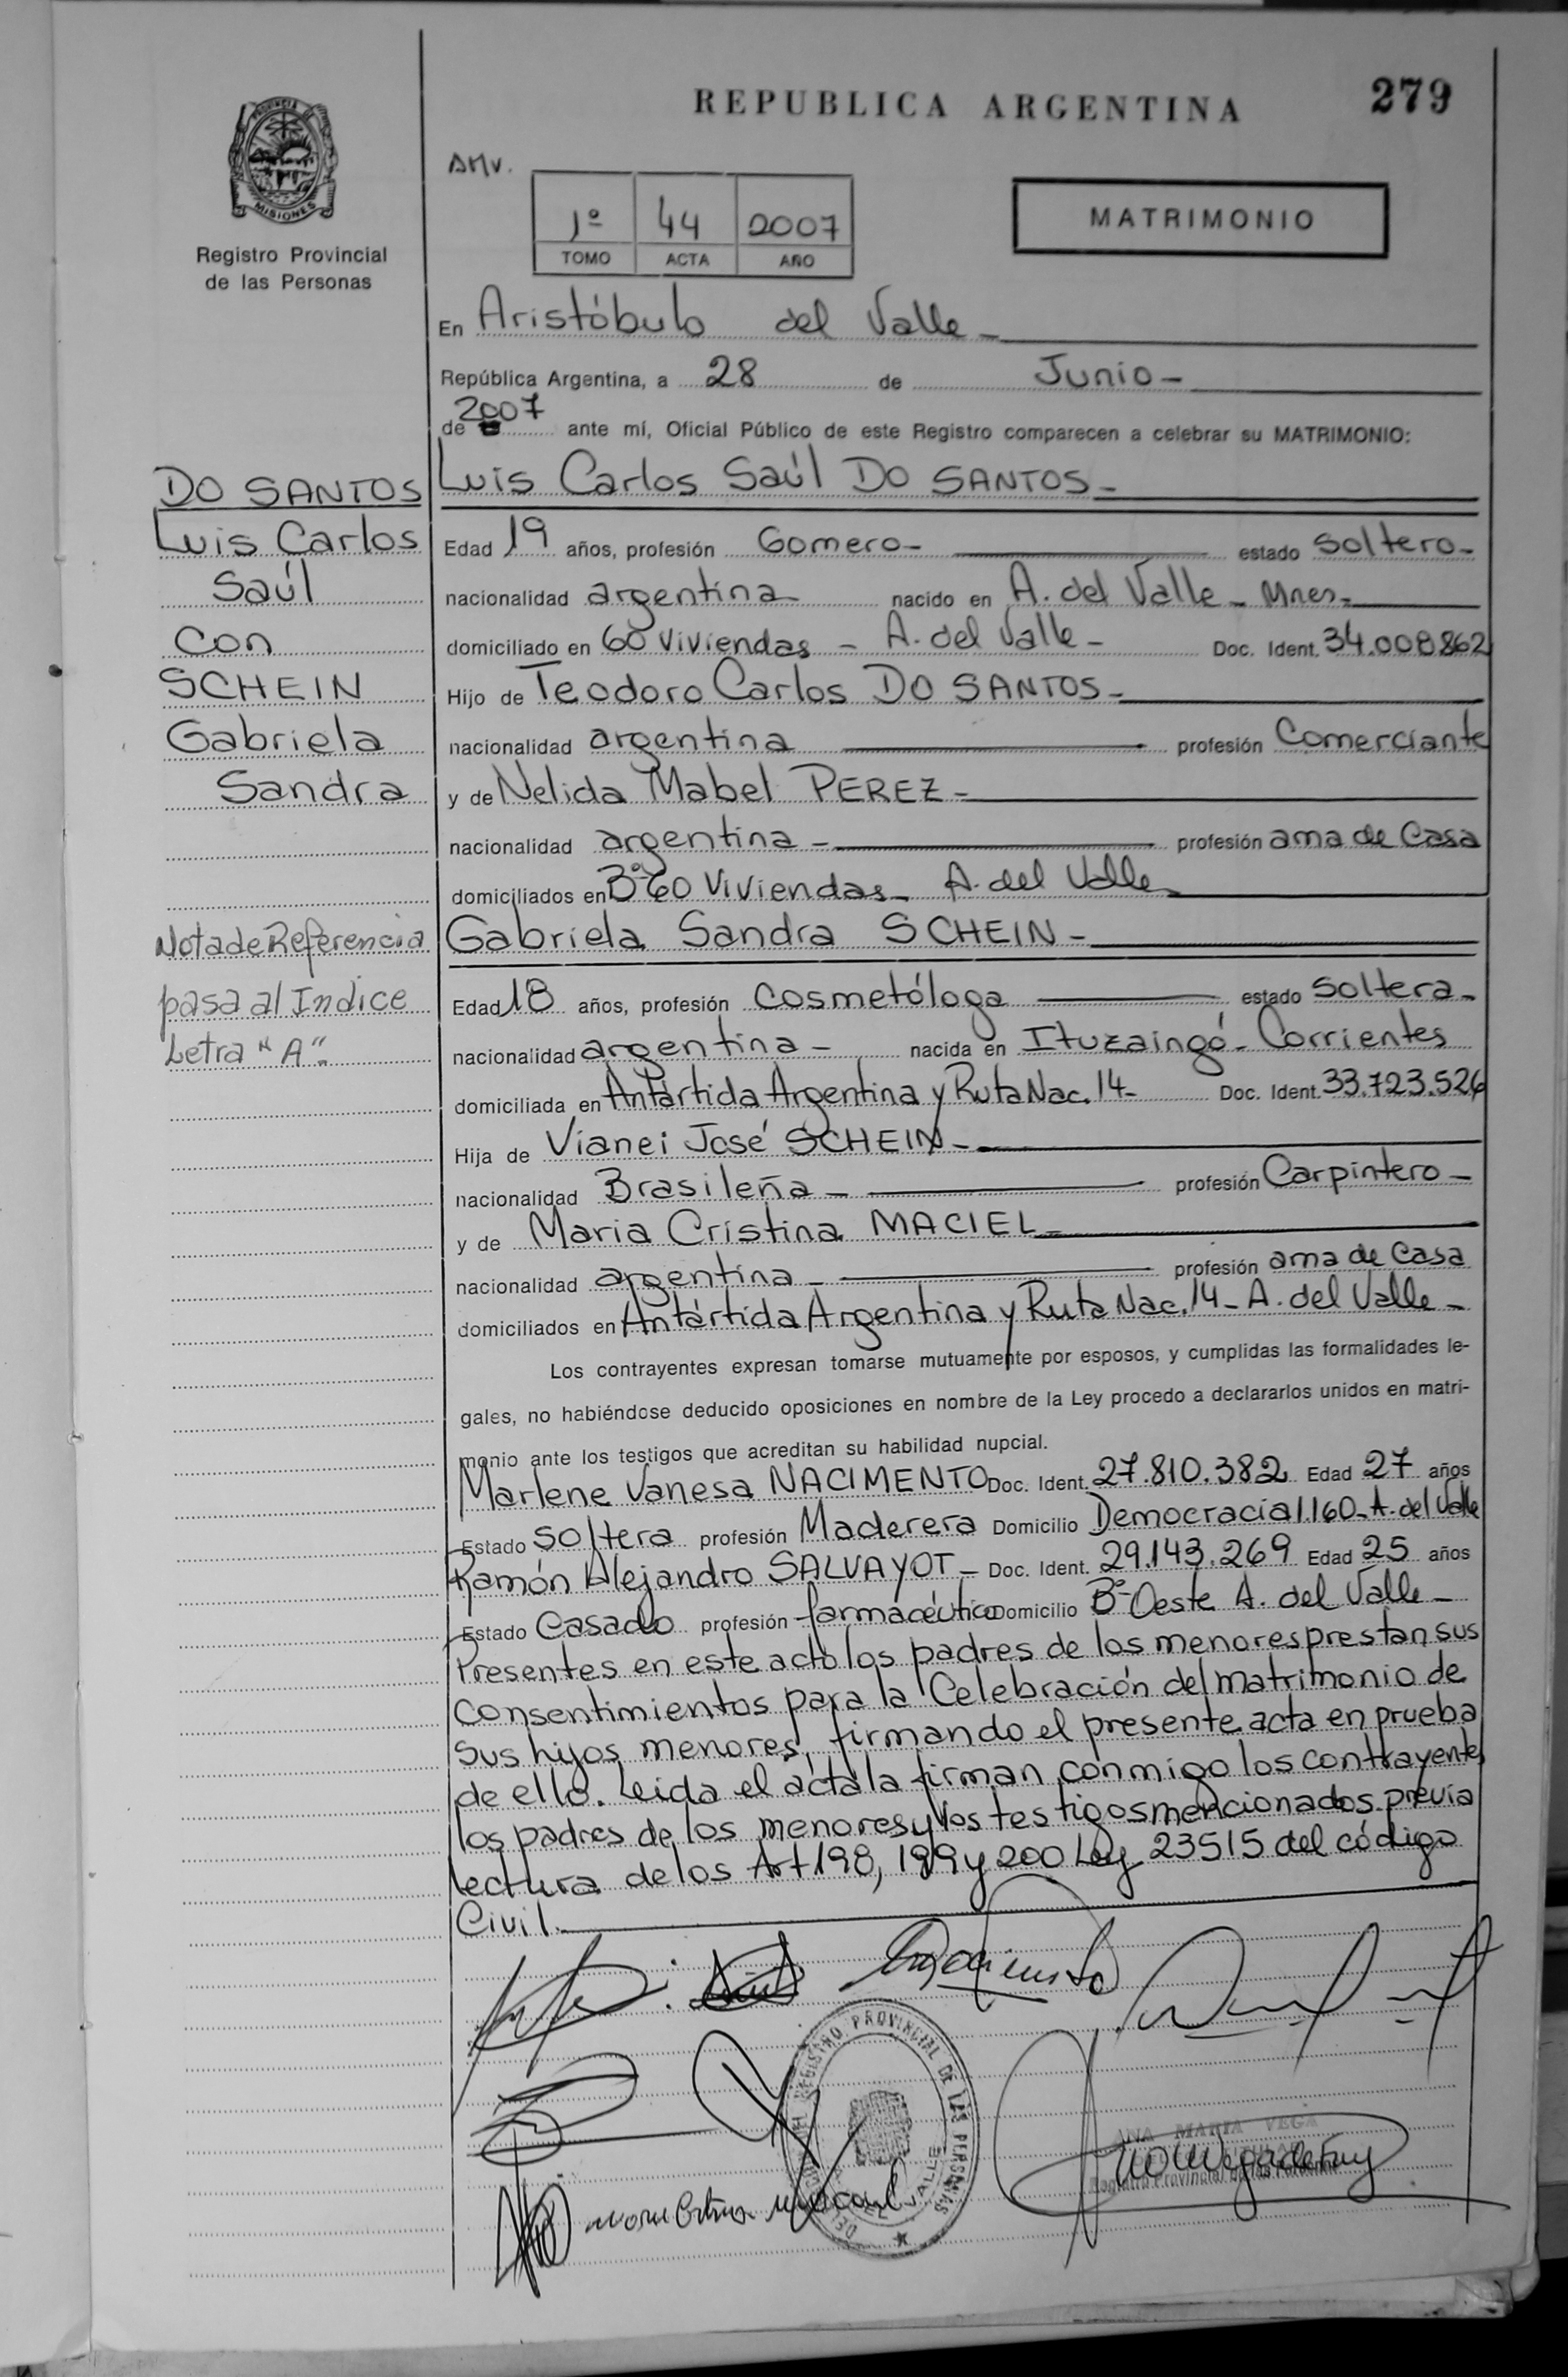 REPUBLICA ARGENTINA
279
PROVINCIA
MISIONES
Registro Provincial
de las Personas
AMV.
1º 44 2007
TOMO ACTA AÑO
MATRIMONIO
En Aristóbulo del Valle-
República Argentina, a 28 de Junio-
de 2007 ante mí, Oficial Público de este Registro comparecen a celebrar su MATRIMONIO:
DO SANTOS
Luis Carlos
Saúl
Con
SCHEIN
Gabriela
Sandra
Nota de Referencia
pasa al Indice
Letra "A".
Luis Carlos Saúl DO SANTOS-
Edad 19 años, profesión Gomero- estado Soltero-
nacionalidad argentina nacido en A. del Valle - Mnes-
domiciliado en 60 Viviendas - A. del Valle- Doc. Ident. 34.008.862
Hijo de Teodoro Carlos DO SANTOS-
nacionalidad argentina profesión Comerciante
y de Nelida Mabel PEREZ-
nacionalidad argentina - profesión ama de Casa
domiciliados en Bº 60 Viviendas- A. del Valle
Gabriela Sandra SCHEIN-
Edad 18 años, profesión Cosmetóloga estado Soltera-
nacionalidad argentina - nacida en Ituzaingó - Corrientes
domiciliada en Antártida Argentina y Ruta Nac. 14- Doc. Ident. 33.723.526
Hija de Vianei José SCHEIN-
nacionalidad Brasileña - profesión Carpintero-
y de Maria Cristina MACIEL-
nacionalidad argentina - profesión ama de Casa
domiciliados en Antártida Argentina y Ruta Nac. 14 - A. del Valle-
Los contrayentes expresan tomarse mutuamente por esposos, y cumplidas las formalidades le-
gales, no habiéndose deducido oposiciones en nombre de la Ley procedo a declararlos unidos en matri-
monio ante los testigos que acreditan su habilidad nupcial.
Marlene Vanesa NACIMENTO Doc. Ident. 27.810.382 Edad 27 años
Estado Soltera profesión Maderera Domicilio Democracia 1.160-A. del Valle
Ramón Alejandro SALVAYOT- Doc. Ident. 29.143.269 Edad 25 años
Estado Casado profesión farmacéutico Domicilio Bº Oeste A. del Valle-
Presentes en este acto los padres de los menores prestan sus
Consentimientos para la Celebración del matrimonio de
sus hijos menores, firmando el presente acta en prueba
de ello. Leida el acta la firman conmigo los contrayentes
los padres de los menores y los testigos mencionados previa
lectura de los Art 198, 199 y 200 Ley 23515 del código
Civil.
REGISTRO PROVINCIAL DE LAS PERSONAS
DEL VALLE
ANA MARIA VEGA
Registro Provincial de las Personas